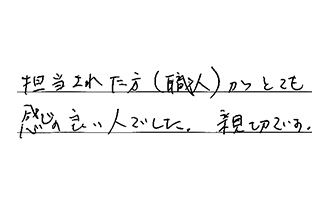 担当された方(職人)がとても
感じの良い人でした。親切です。